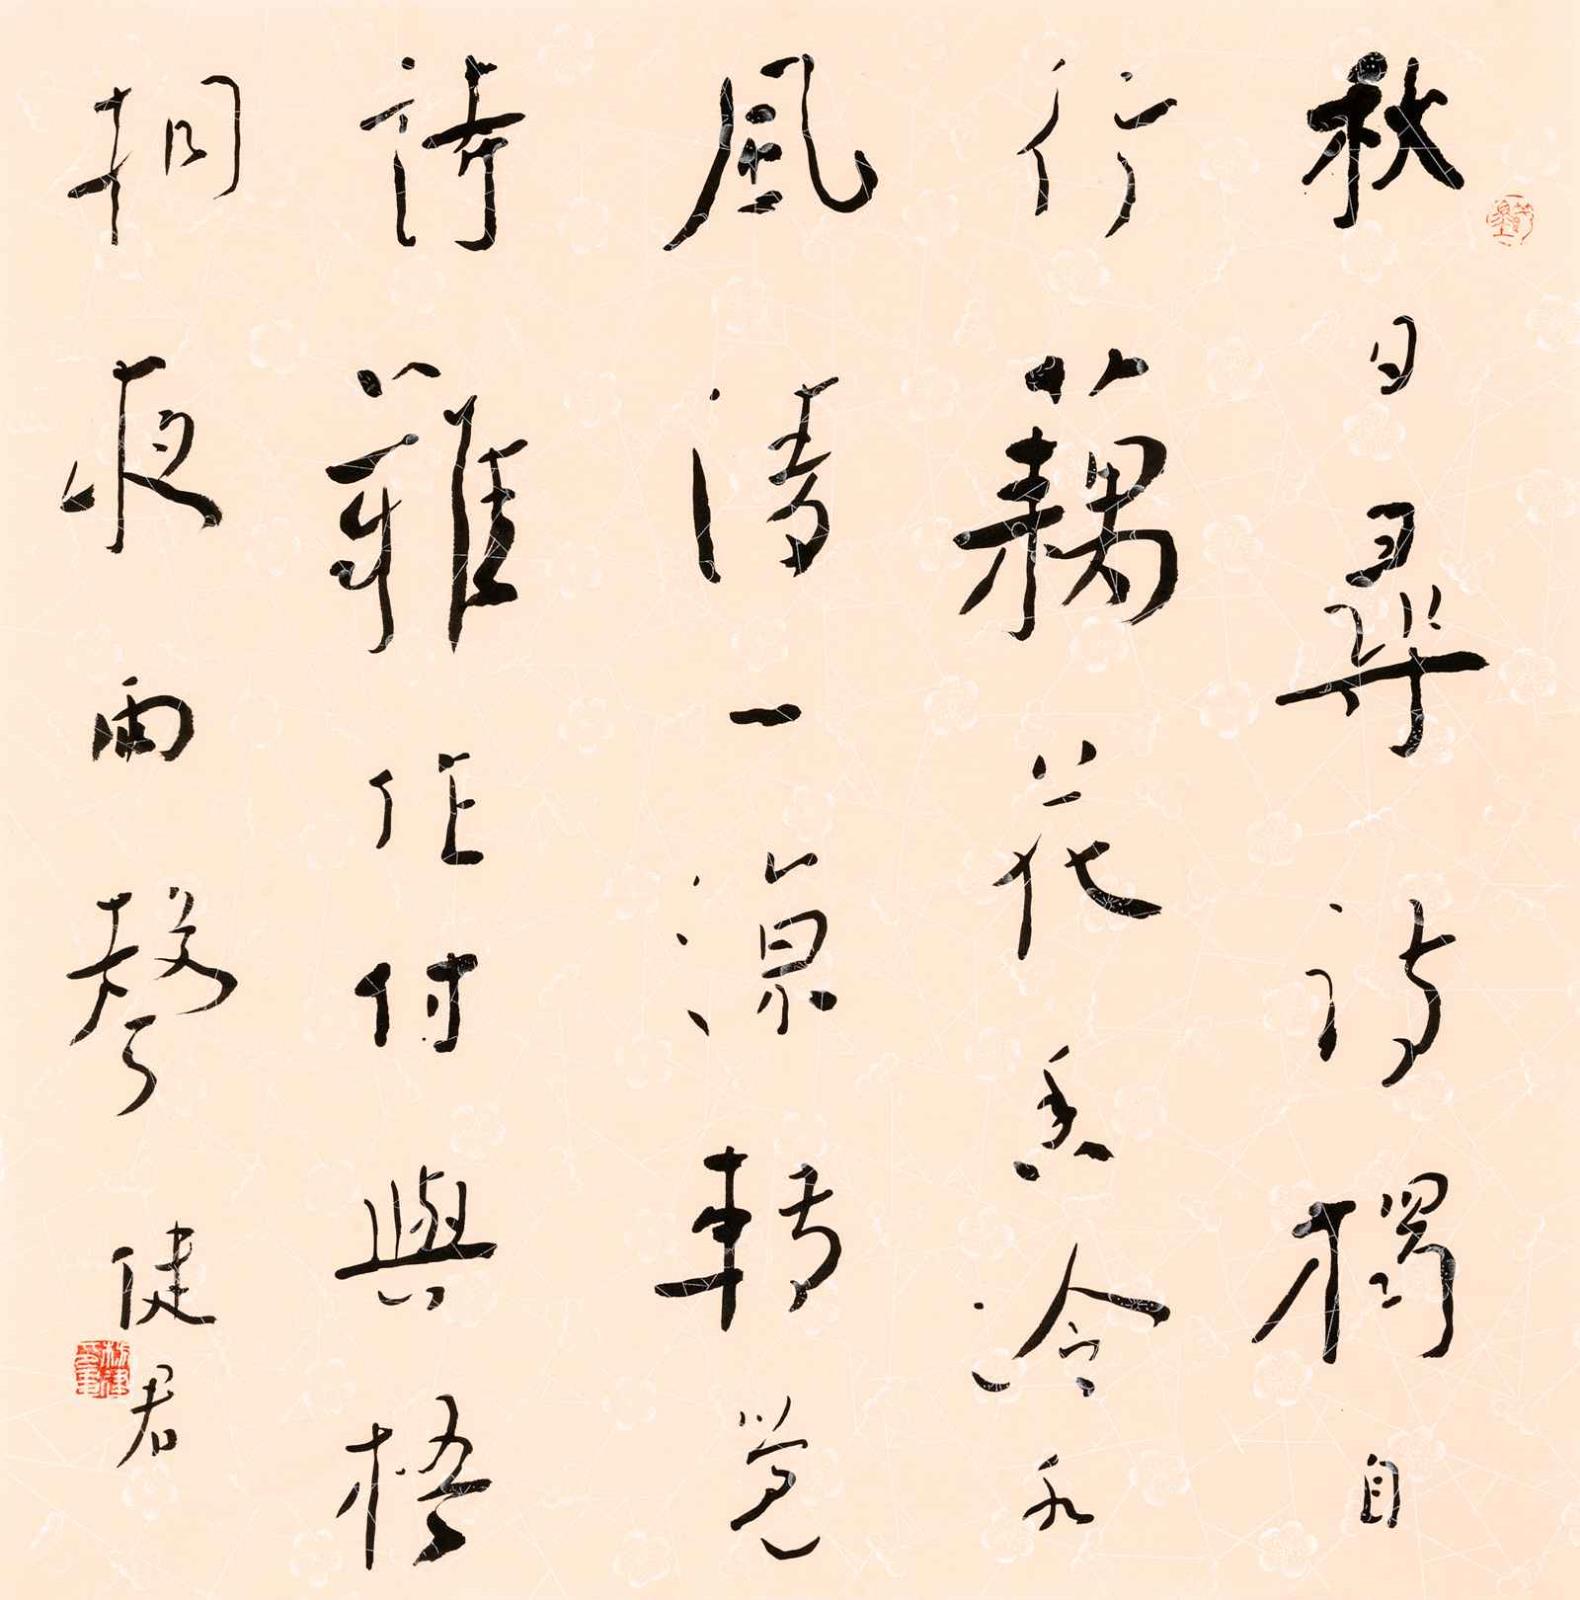 秋日尋詩獨自
行藕花香冷水
風清一涼轉覺
詩難作付與梧
桐夜雨聲 健君